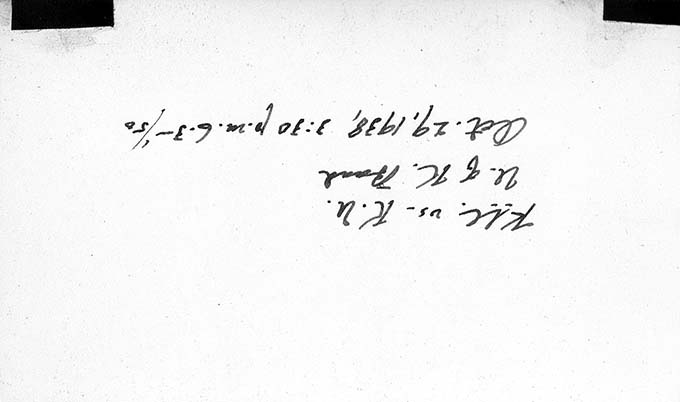 K.S.C. vs. K.U.
U. of K. Band
Oct. 29, 1938, 3:30 p.m. 6.3 - 1/50